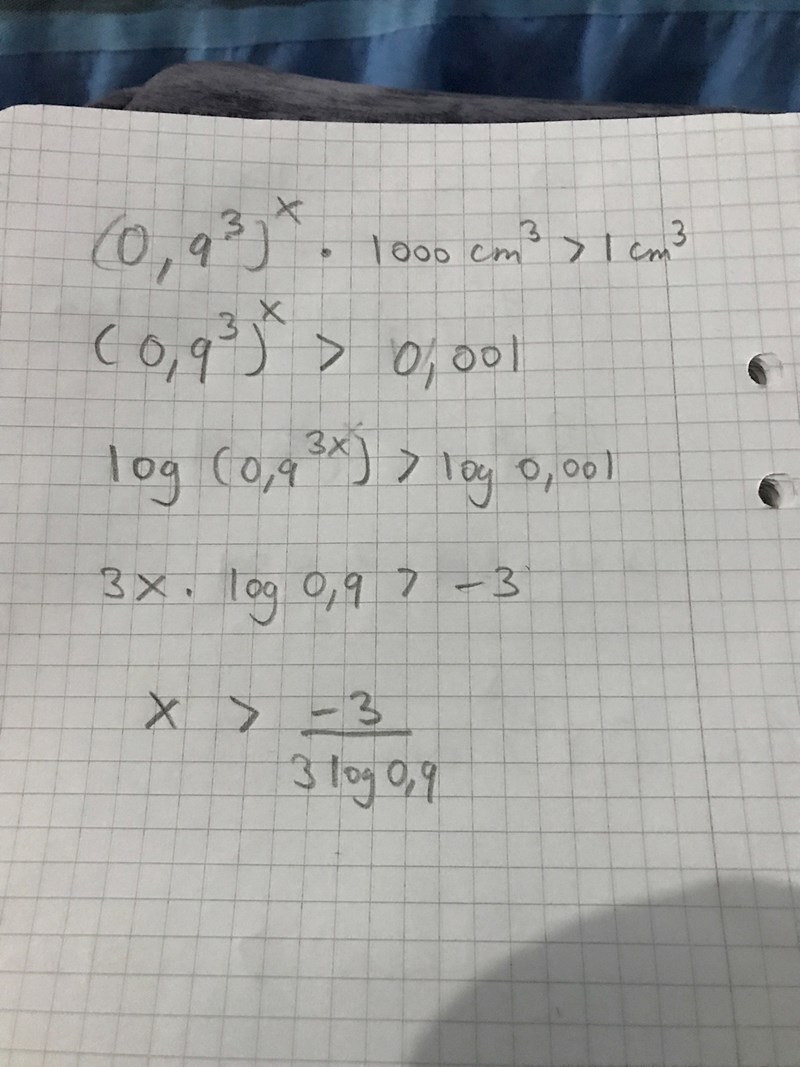 (0,9³)ˣ · 1000 cm³ > 1 cm³
(0,9³)ˣ > 0,001
log (0,9³ˣ) > log 0,001
3x · log 0,9 > -3
x > -3 / 3 log 0,9